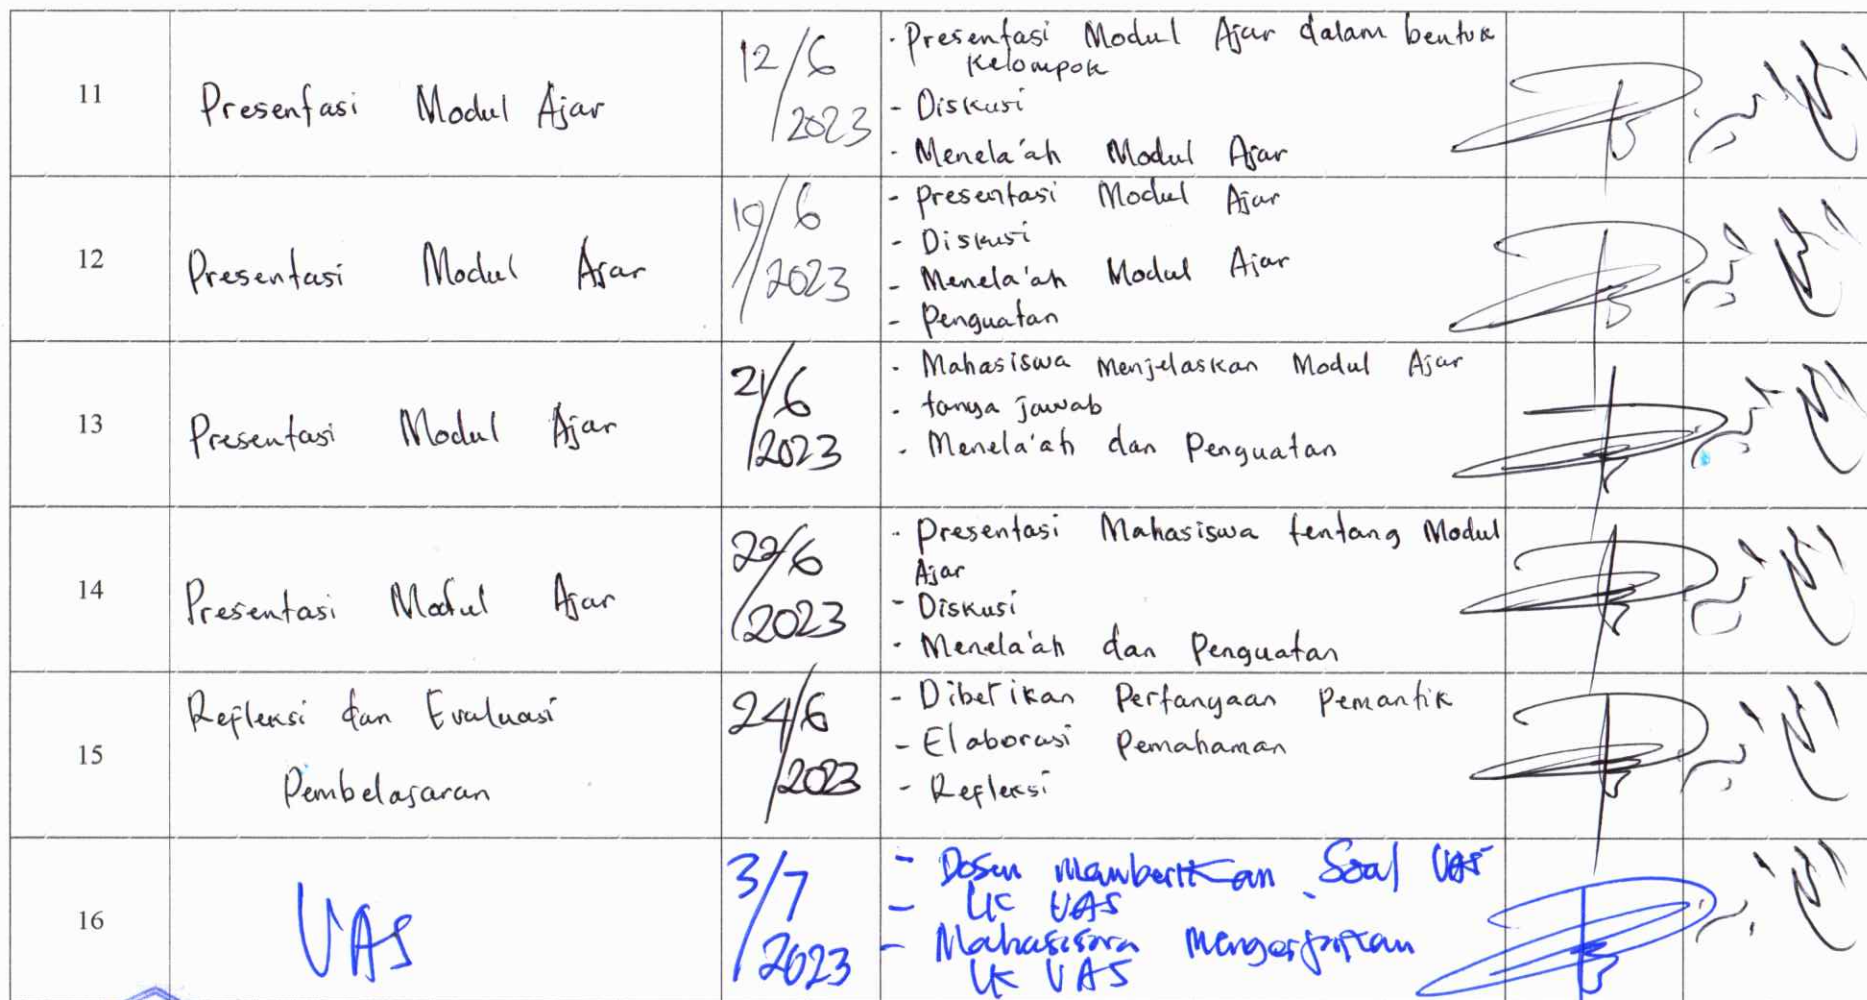 11
Presentasi Modul Ajar
12/6
/2023
- Presentasi Modul Ajar dalam bentuk
Kelompok
- Diskusi
- Menela'ah Modul Ajar
12
Presentasi Modul Ajar
19/6
/2023
- Presentasi Modul Ajar
- Diskusi
- Menela'ah Modul Ajar
- Penguatan
13
Presentasi Modul Ajar
21/6
/2023
- Mahasiswa Menjelaskan Modul Ajar
- tanya jawab
- Menela'ah dan Penguatan
14
Presentasi Modul Ajar
22/6
/2023
- Presentasi Mahasiswa tentang Modul
Ajar
- Diskusi
- Menela'ah dan Penguatan
15
Refleksi dan Evaluasi
Pembelajaran
24/6
/2023
- Diberikan Pertanyaan Pemantik
- Elaborasi Pemahaman
- Refleksi
16
UAS
3/7
/2023
- Dosen Memberikan Soal UAS
- LK UAS
- Mahasiswa Mengerjakan
LK UAS